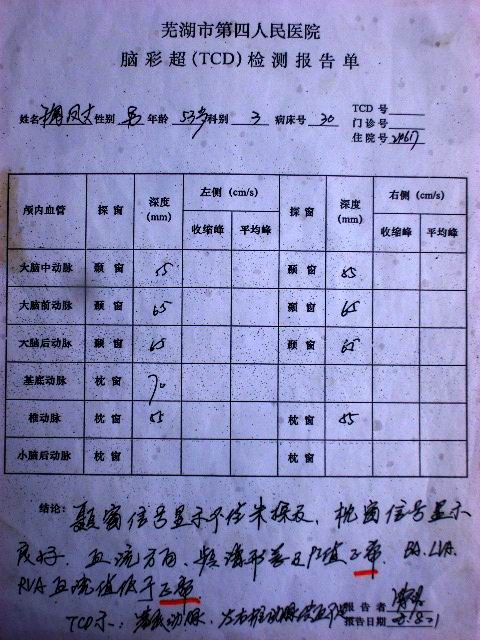 芜湖市第四人民医院
脑彩超(TCD)检测报告单
TCD 号
门诊号
姓名 性别 男 年龄 53岁 科别 3 病床号 30
住院号
颅内血管 探窗 深度(mm) 左侧 (cm/s) 探窗 深度(mm) 右侧 (cm/s)
收缩峰 平均峰 收缩峰 平均峰
大脑中动脉 颞窗 55 颞窗 55
大脑前动脉 颞窗 65 颞窗 65
大脑后动脉 颞窗 65 颞窗 65
基底动脉 枕窗 90
椎动脉 枕窗 55 枕窗 55
小脑后动脉 枕窗 枕窗
结论: 颞窗信号显示不佳未探及,枕窗信号显示
良好,血流方向、频谱形态及PI值正常,BA、LVA、
RVA血流值低于正常.
TCD示: 基底动脉、左右椎动脉供血不足
报告者
报告日期